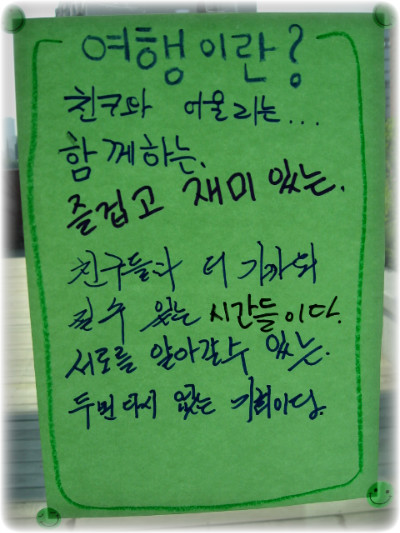 여행이란?
친구와 어울리는...
함께하는.
즐겁고 재미있는.
친구들과 더 가까워
질 수 있는 시간들이다.
서로를 알아갈수 있는.
두번 다시 없는 기회이다.